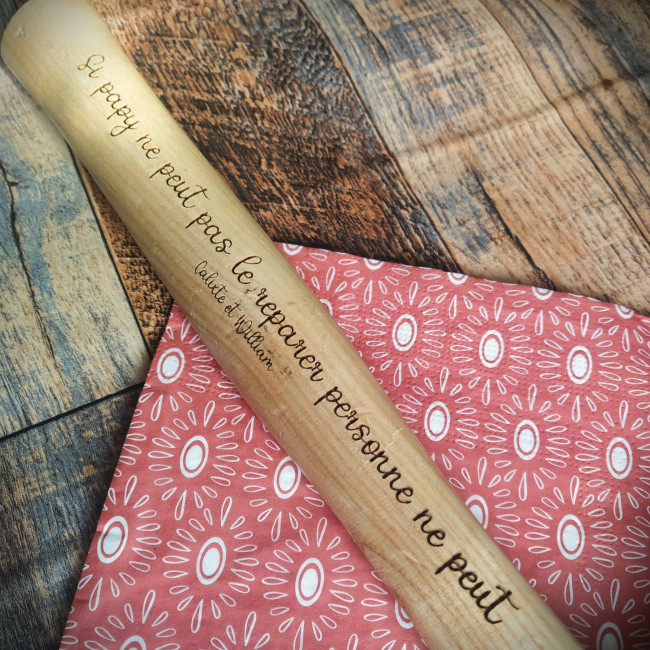 Si papy ne peut pas le reparer personne ne peut
Calixte et William